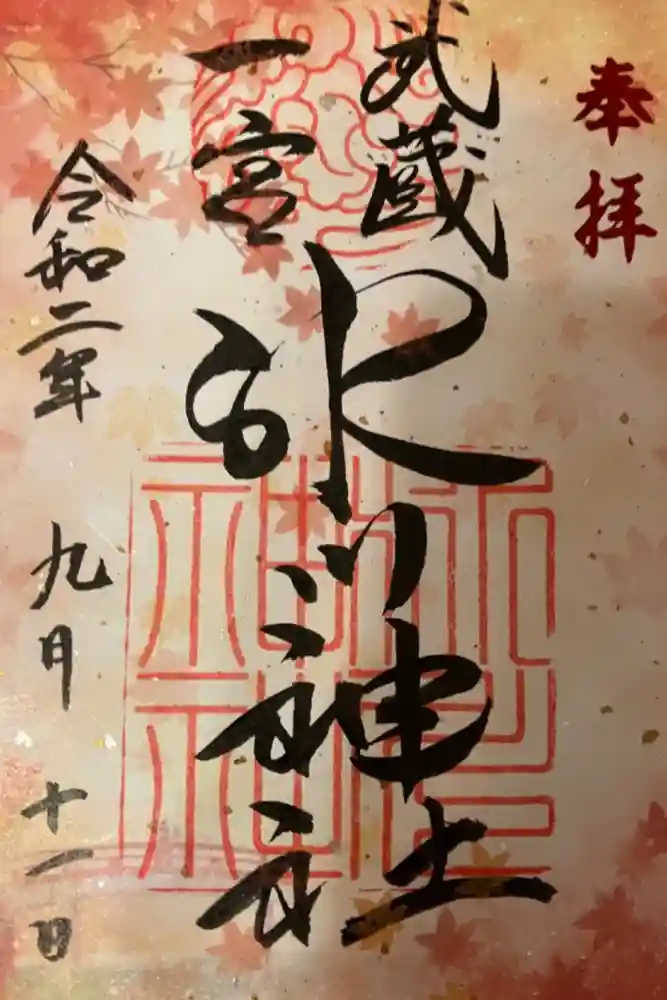 奉拝
武蔵
一宮
氷川神社
令和二年
九月
十一日